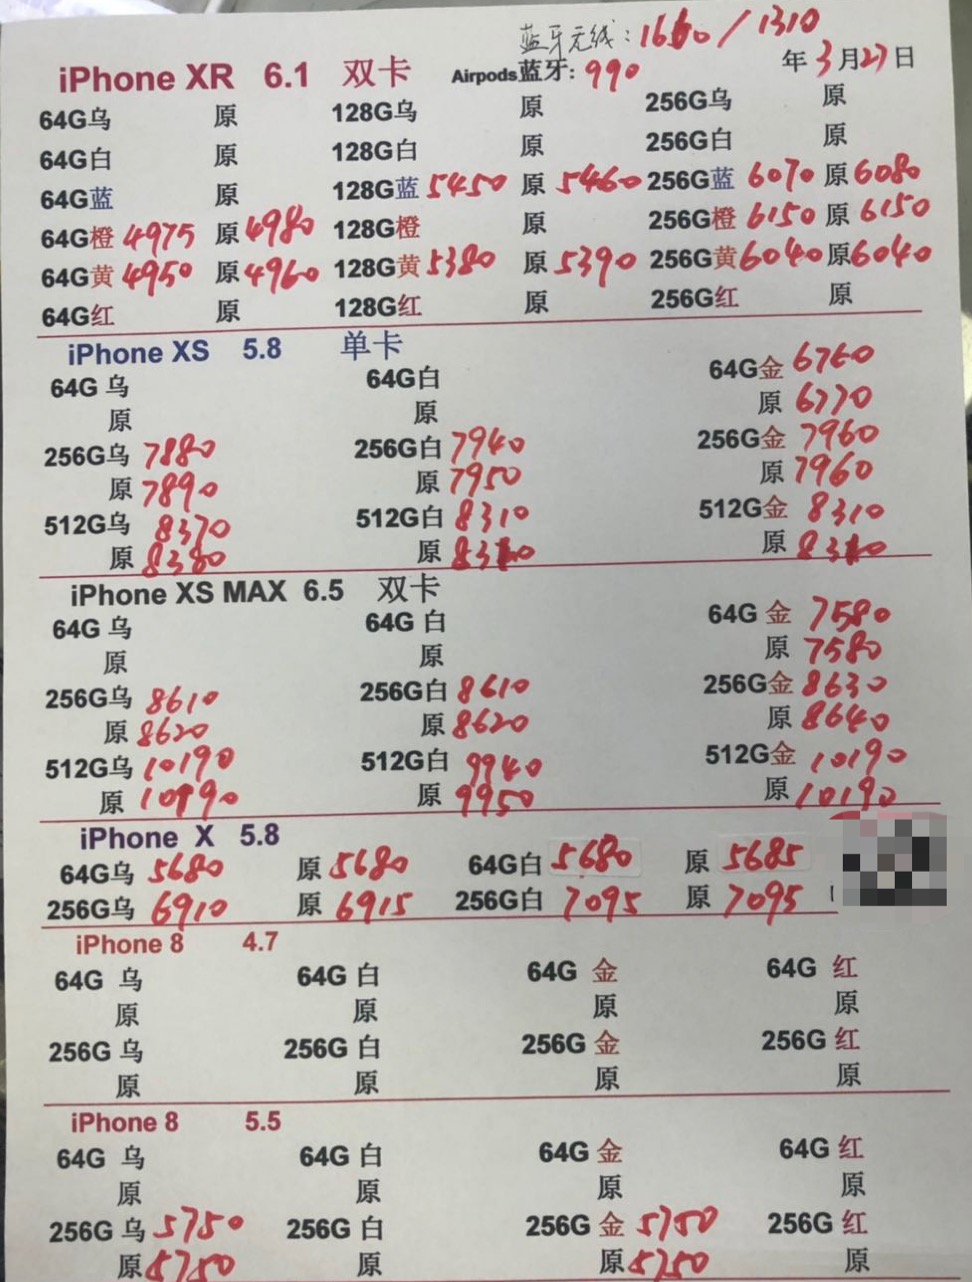 蓝牙无线：1610 / 1310
iPhone XR 6.1 双卡 Airpods蓝牙：990 年3月27日
64G乌 原 128G乌 原 256G乌 原
64G白 原 128G白 原 256G白 原
64G蓝 原 128G蓝 5450 原 5460 256G蓝 6070 原 6080
64G橙 4975 原 4980 128G橙 原 256G橙 6150 原 6150
64G黄 4950 原 4960 128G黄 5380 原 5390 256G黄 6040 原 6040
64G红 原 128G红 原 256G红 原
iPhone XS 5.8 单卡
64G 乌 64G白 64G金 6760
原 原 原 6770
256G乌 7880 256G白 7940 256G金 7960
原 7890 原 7950 原 7960
512G乌 8370 512G白 8310 512G金 8310
原 8380 原 原
iPhone XS MAX 6.5 双卡
64G 乌 64G 白 64G 金 7580
原 原 原 7580
256G乌 8610 256G白 8610 256G金 8630
原 8620 原 8620 原 8640
512G乌 10190 512G白 9940 512G金 10190
原 10190 原 9950 原 10190
iPhone X 5.8
64G乌 5680 原 5680 64G白 5680 原 5685
256G乌 6910 原 6915 256G白 7095 原 7095
iPhone 8 4.7
64G 乌 64G 白 64G 金 64G 红
原 原 原 原
256G 乌 256G 白 256G 金 256G 红
原 原 原 原
iPhone 8 5.5
64G 乌 64G 白 64G 金 64G 红
原 原 原 原
256G 乌 5750 256G 白 256G 金 5750 256G 红
原 5750 原 原 5750 原